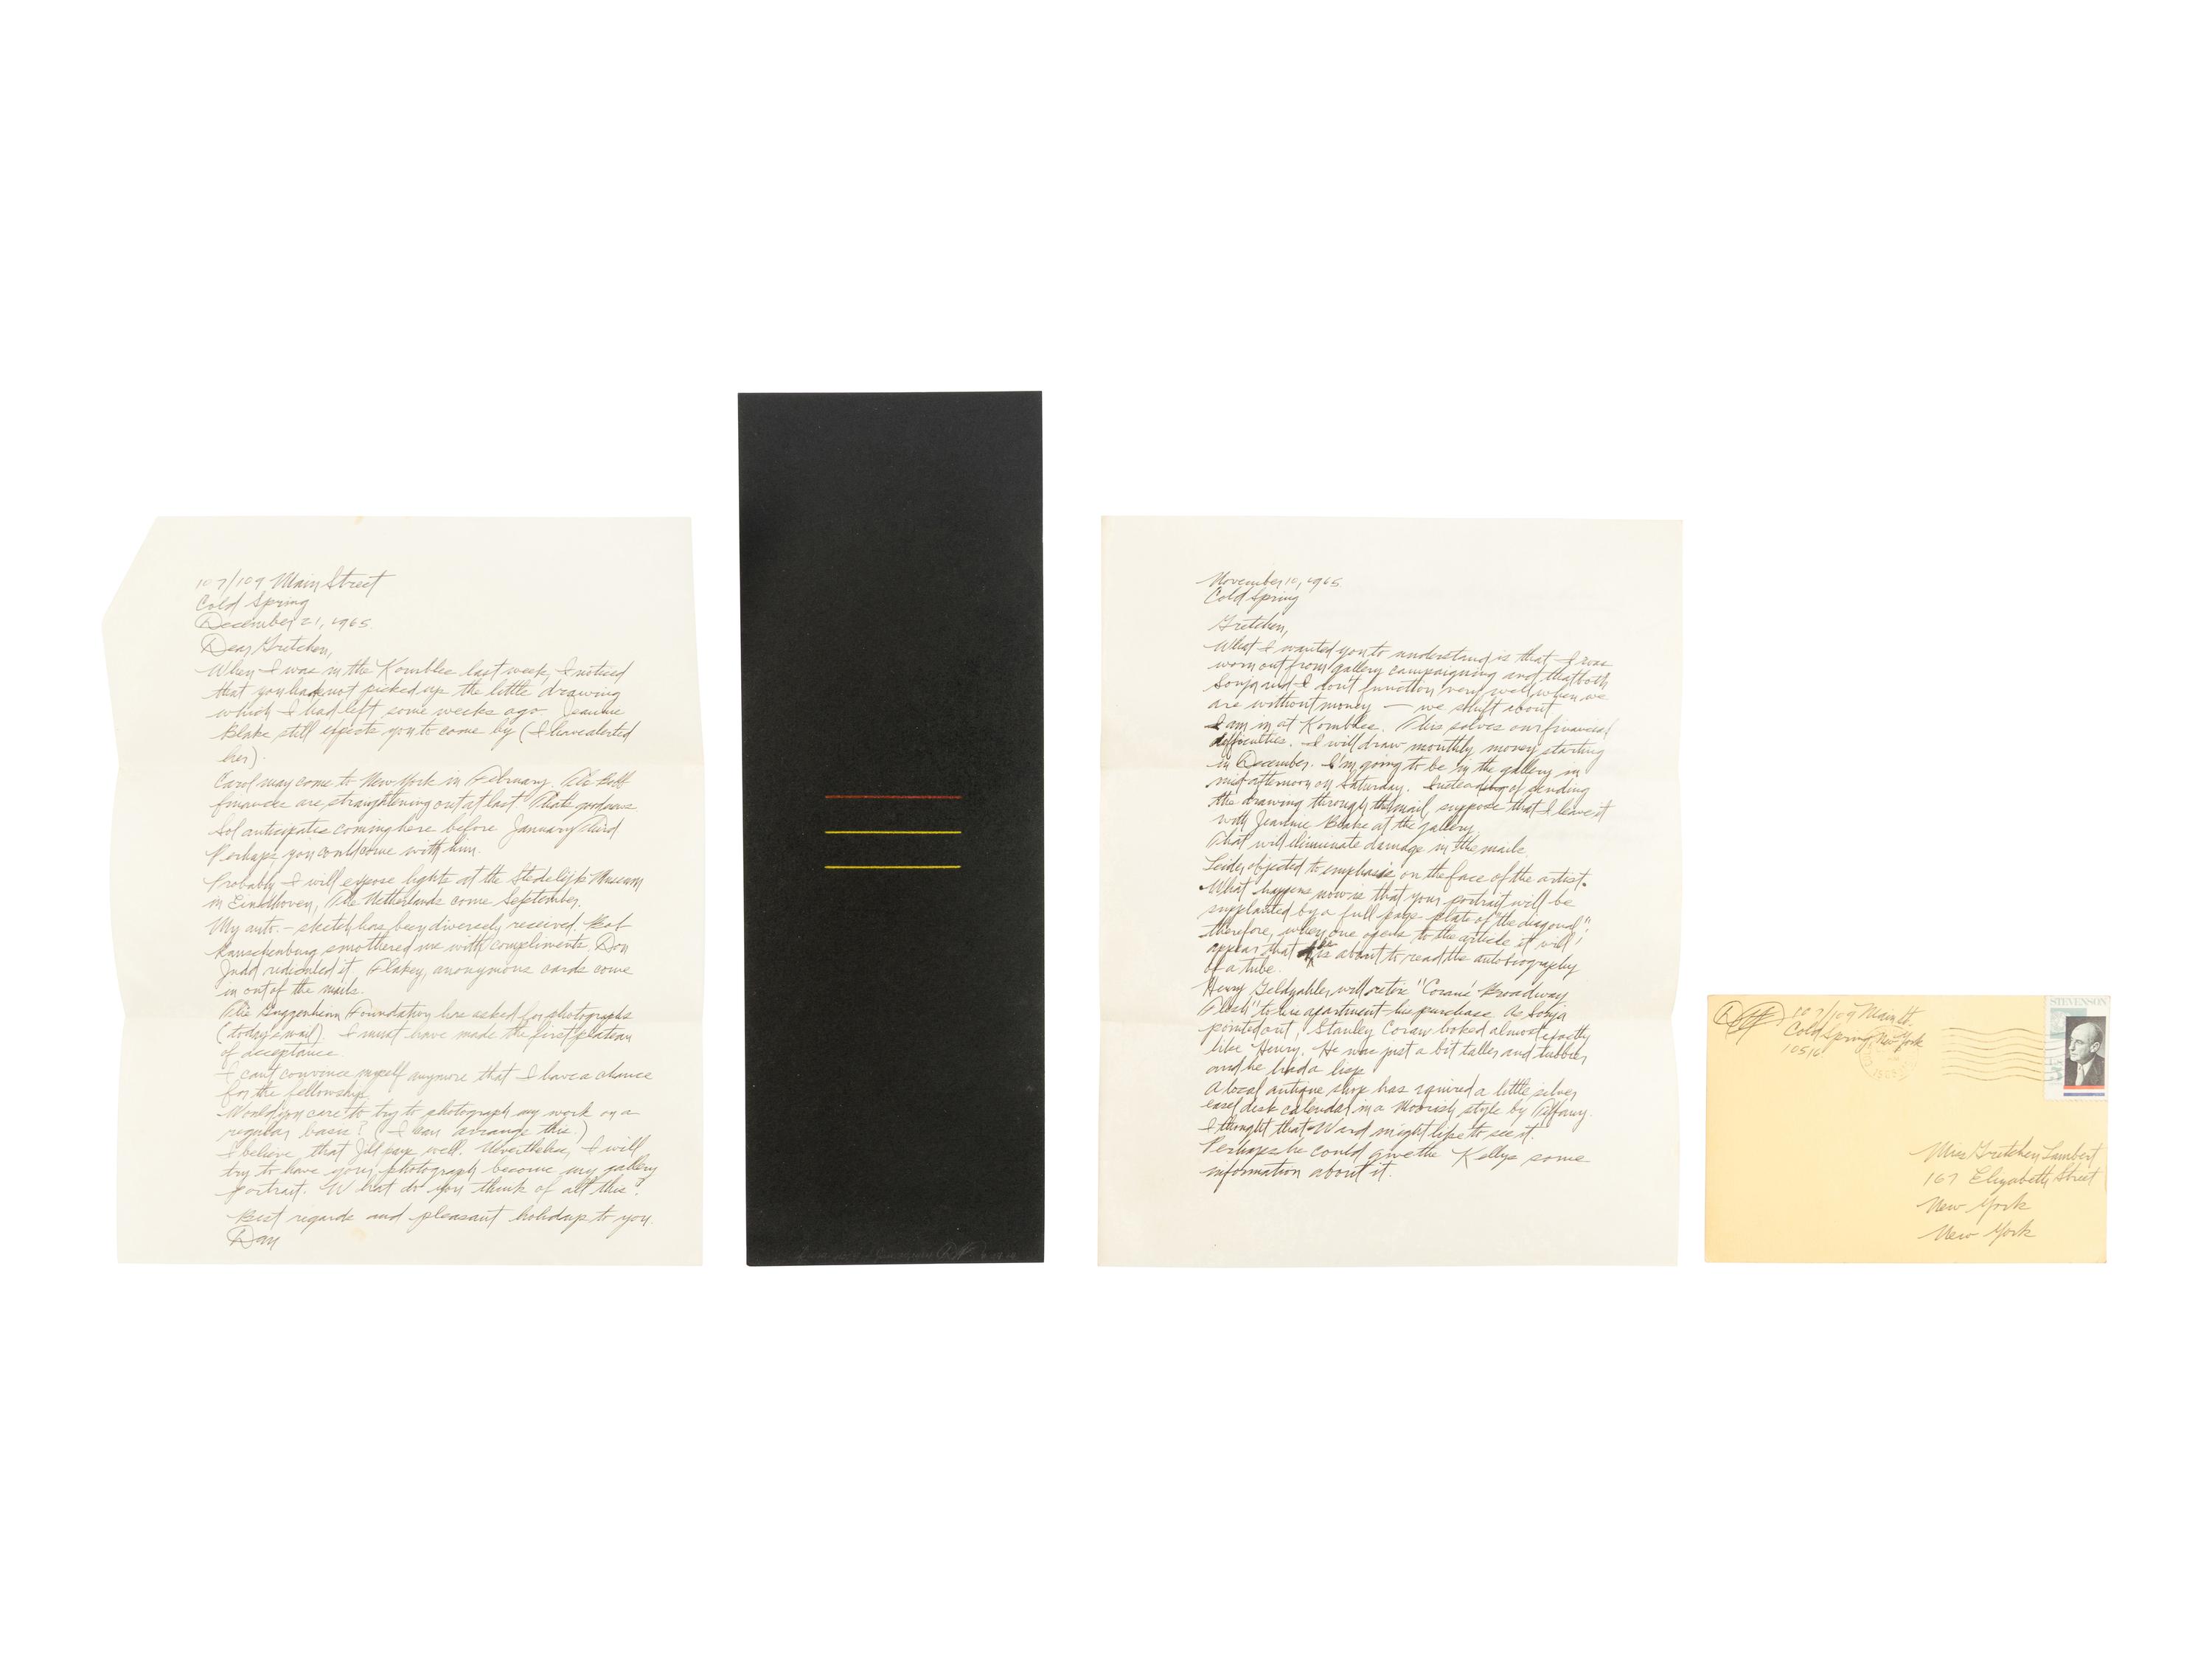 107/109 Main Street
Cold Spring
December 21, 1965.
Dear Gretchen,
When I was in the Kornblee last week, I noticed
that you had not picked up the little drawing
which I had left some weeks ago. Jeannie
Blake still expects you to come by (I have alerted
her).
Carol may come to New York in February. The
finances are straightening out at last. That's good news
Sol anticipates coming here before January third
Perhaps you could come with him.
Probably I will expose lights at the Stedelijk Museum
in Eindhoven, The Netherlands come September.
My auto.-sketch has been diversely received. Bob
Rauschenburg smothered me with compliments, Don
Judd ridiculed it, Flakey, anonymous cards come
in out of the mails.
The Guggenheim Foundation has asked for photographs
(today's mail). I must have made the first plateau
of acceptance.
I can't convince myself anymore that I have a chance
for the fellowship.
Would you care to try to photograph my work on a
regular basis? (I can arrange this.)
I believe that Jill pays well. Nevertheless, I will
try to have your photograph become my gallery
portrait. What do you think of all this?
Best regards and pleasant holidays to you.
Dan
November 10, 1965.
Cold Spring
Gretchen,
What I wanted you to understand is that I was
worn out from gallery campaigning and that both
Sonja and I don't function very well when we
are without money — we shift about
I am in at Kornblee. This solves our financial
difficulties. I will draw monthly money starting
in December. I'm going to be in the gallery in
mid afternoon on Saturday. Instead of sending
the drawing through the mail, suppose that I leave it
with Jeannie Blake at the gallery.
That will eliminate damage in the mails.
Leider objected to emphasis on the face of the artist.
What happens now is that your portrait will be
supplanted by a full page plate of "the diagonal";
therefore, when one opens to the article it will
appear that he is about to read the autobiography
of a tube.
Henry Geldzahler will retire "Coran's Broadway
Flesh" to his apartment - his purchase. As Sonja
pointed out, Stanley Coran looked almost exactly
like Henry. He was just a bit taller and tubbier
and he had a lisp
A local antique shop has squired a little silver
easel desk calendar in a Moorish style by Tiffany.
I thought that Ward might like to see it.
Perhaps he could give the Kellys some
information about it.
107/109 Main St.
Cold Spring, New York
10516
STEVENSON
Miss Gretchen Lambert
167 Elizabeth Street
New York
New York